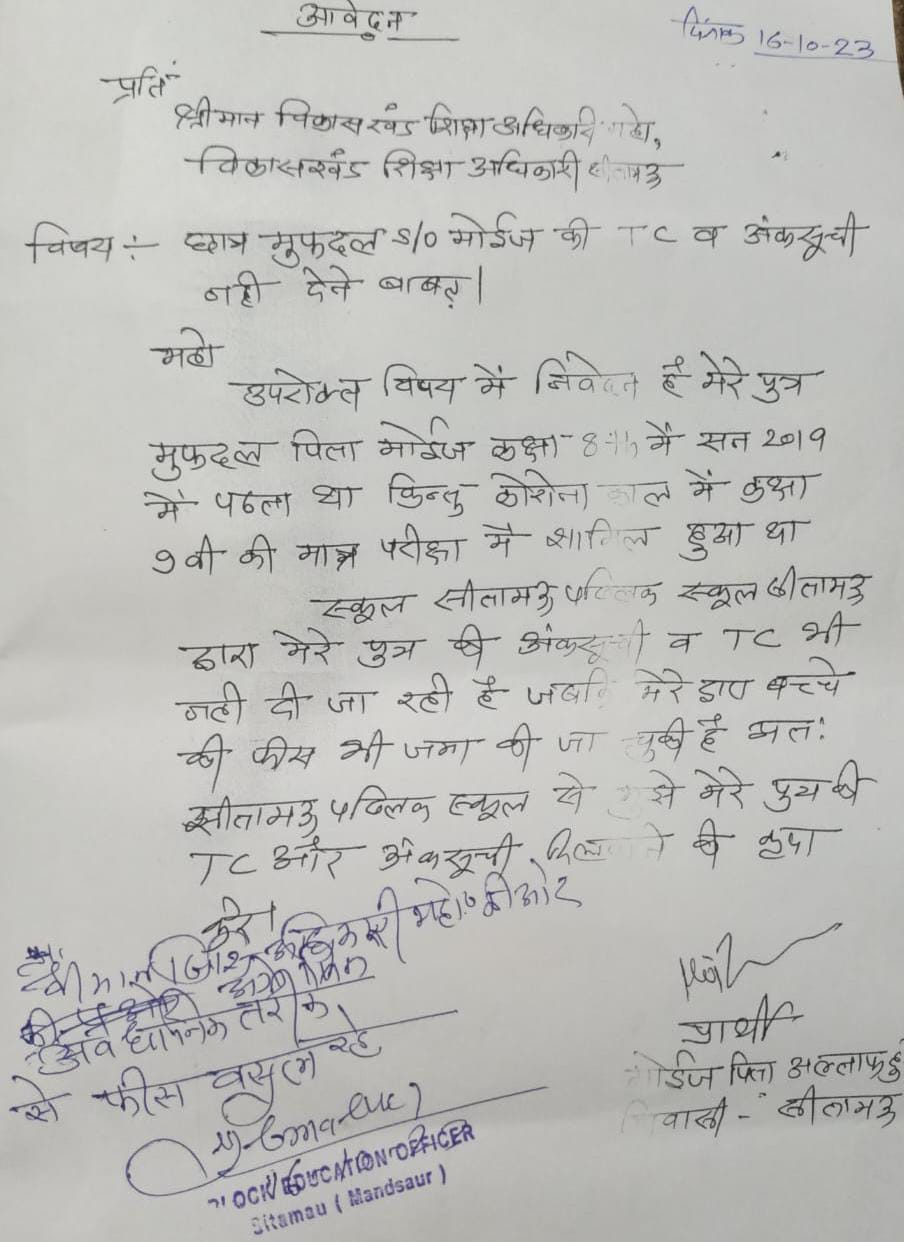 आवेदन
दिनांक 16-10-23
प्रति
श्रीमान विकासखंड शिक्षा अधिकारी महो,
विकासखंड शिक्षा अधिकारी सीतामऊ
विषय :- छात्र मुफदल S/O मोईज की TC व अंकसूची
नही देने बाबत्।
महो
उपरोक्त विषय में निवेदन है मेरे पुत्र
मुफदल पिता मोईज कक्षा 8th में सन 2019
में पढता था किन्तु कोरोना काल में कक्षा
9वी की मात्र परीक्षा मे शामिल हुआ था
स्कूल सीतामऊ पब्लिक स्कूल सीतामऊ
द्वारा मेरे पुत्र की अंकसूची व TC भी
नही दी जा रही है जबकि मेरे द्वारा बच्चे
की फीस भी जमा की जा चुकी है अत:
सीतामऊ पब्लिक स्कूल से मुझे मेरे पुत्र की
TC और अंकसूची दिलवाने की कृपा
करे।
श्रीमान जिला अधिकारी महो० की ओर
की ओर अग्रेषित
अवैधानिक तरीके
से फीस वसूल रहे
प्रार्थी
मोईज पिता अल्ताफहु
निवासी - सीतामऊ
BLOCK EDUCATION OFFICER
Sitamau ( Mandsaur )